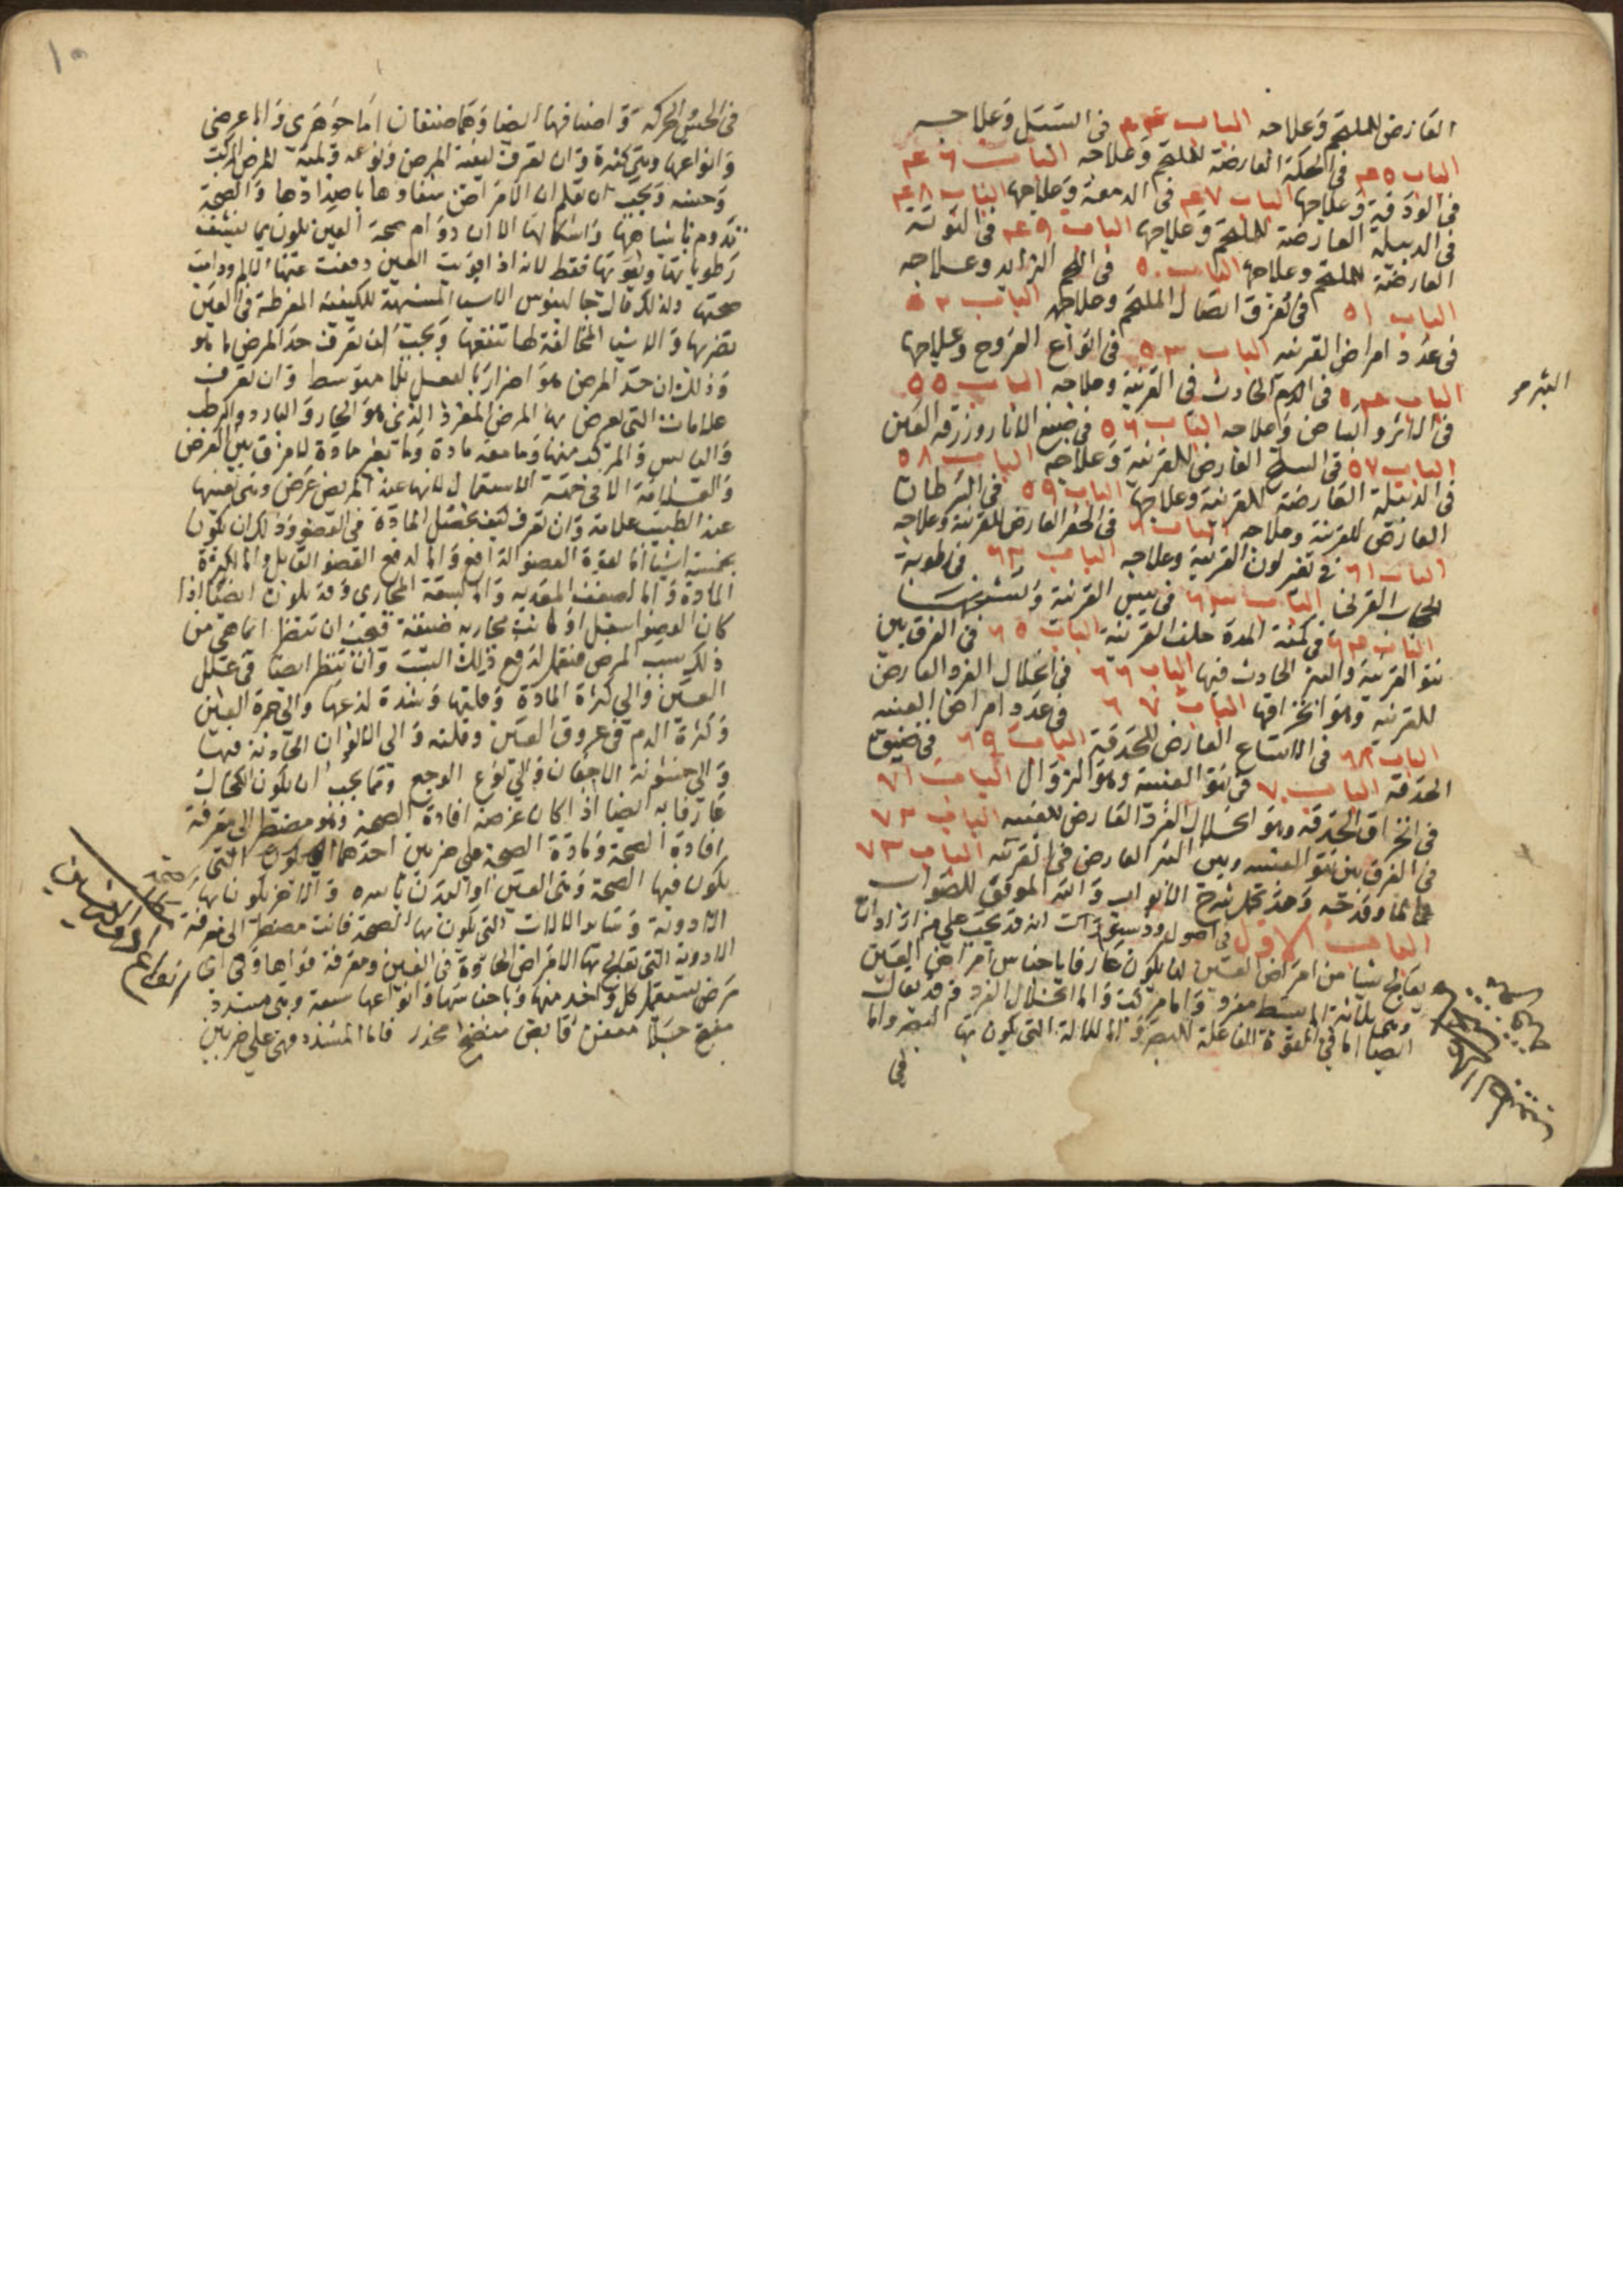 العارض للملتحم وعلاجه الباب ٤٤ في السبل وعلاجه
الباب ٤٥ في الحكة العارضة للملتحم وعلاجه الباب ٤٦
في الودقة وعلاجها الباب ٤٧ في الدمعة وعلاجها الباب ٤٨
في الدبيلة العارضة للملتحم وعلاجها الباب ٤٩ في التوتة
العارضة للملتحم وعلاجها الباب ٥٠ في اللحم الزايد وعلاجه
الباب ٥١ في تفرق اتصال الملتحم وعلاجه الباب ٥٢
في عدد امراض القرنيه الباب ٥٣ في انواع القروح وعلاجها
الباب ٥٤ في الحادث في القرنية وعلاجه الباب ٥٥
في الاثر والبياض وعلاجه الباب ٥٦ في صبغ الاثار وزرقه العين
الباب ٥٧ في السلخ العارض للقرنية وعلاجه الباب ٥٨
في الدبيلة العارضة للقرنية وعلاجها الباب ٥٩ في السرطان
العارض للقرنية وعلاجه الباب ٦٠ في الحفر العارض للقرنية وعلاجه
الباب ٦١ في تغير لون القرنية وعلاجه الباب ٦٢ في رطوبة
الحجاب القرني الباب ٦٣ في يبس القرنية
الباب ٦٤ في كمنة المدة خلف القرنية الباب ٦٥ في الفرق بين
نتو القرنية والبثر الحادث فيها الباب ٦٦ في انحلال الفرد العارض
للقرنيه وهو انخراقها الباب ٦٧ في عدد امراض العنبيه
الباب ٦٨ في الاتساع العارض للحدقة الباب ٦٩ في ضيق
الحدقة الباب ٧٠ في نتو العنبية وهو الزوال الباب ٧١
في انخراق الحدقه وهو انحلال الفرد العارض للعنبيه الباب ٧٢
في الفرق بين نتو العنبيه وبين البثر العارض في القرنيه الباب ٧٣
في الما وقدحه وهذا شرح الابواب والله الموفق للصواب
الباب الاول في اصول انه قد يجب على من اراد ان
يعالج شيا من امراض العين ان يكون عارفا باجناس امراض العين
وهي ثلاثة اما بسيط مفرد واما مركب واما انحلال الفرد
ايضا اما في القوة الفاعلة للبصر واما للالة التي يكون بها البصر واما
في
البثر
١٠
في الحس والحركة واصنافها ايضا وهما صنفان اما جوهري واما عرضي
وانواعها وهي كثيرة وان تعرف كيفية المرض ونوعه وكمية المرض المركب
وحسه ويجب ان تعلم ان الامراض شفاوها باضدادها والصحة
تدوم باشباهها واشكالها الا ان دوام صحة العين يكون بما ينشف
رطوباتها ويقويها فقط لانه اذا قويت العين دفعت عنها الالم ودامت
صحتها ولذلك قال جالينوس الاشيا المشبهة للكيفية المفرطة في العين
تضرها والاشيا المخالفة لها تنفعها ويجب ان تعرف حد المرض ما هو
وذلك ان حد المرض هو اضرار بالفعل بلا متوسط وان تعرف
علامات التي تعرض بها المرض المفرد الذي هو الحار والبارد والرطب
واليابس والمركب منها وما معه مادة وما بغير مادة لا فرق بين العرض
والعلامة الا في جهة الاستعمال لانها عند المريض عرض وهي بعينها
عند الطبيب علامة وان تعرف كيف تحصل المادة في العضو وذلك ان يكون
بخمسة اشيا اما لقوة العضو الدافع واما لضعف العضو القابل واما لكثرة
المادة واما لضعف المغذيه واما لسعة المجاري وقد يكون ايضا اذا
كان العضو اسفل او كانت مجاريه ضيقة فيجب ان تنظر ايما هي من
ذلك سبب المرض فتعمل لدفع ذلك السبب وان تنظر ايضا في علل
العين والى كثرة المادة وقلتها وشدة لذعها والى حمرة العين
وكثرة الدم في عروق العين وقلته والى الالوان الحادثة فيها
والى خشونة الاجفان والى نوع الوجع ومما يجب ان يكون الكحال
عارفا به ايضا اذا كان غرضه افادة الصحة وهو مضطر الى معرفة
افادة الصحة ومادة الصحة على ضربين احدهما التي
يكون فيها الصحة وهي العين او البدن باسره والاخر يكون بها
الادوية وساير الالات التي يكون بها الصحة فانت مضطر الى معرفة
الادوية التي تعالج بها الامراض الحادثة في العين ومعرفة قواها وفي اي
مرض تستعمل كل واحد منها واجناسها وانواعها سبعة وهي مسدد
مفتح جلا معفن قابض منضج مخدر فاما المسدد فهي على ضربين